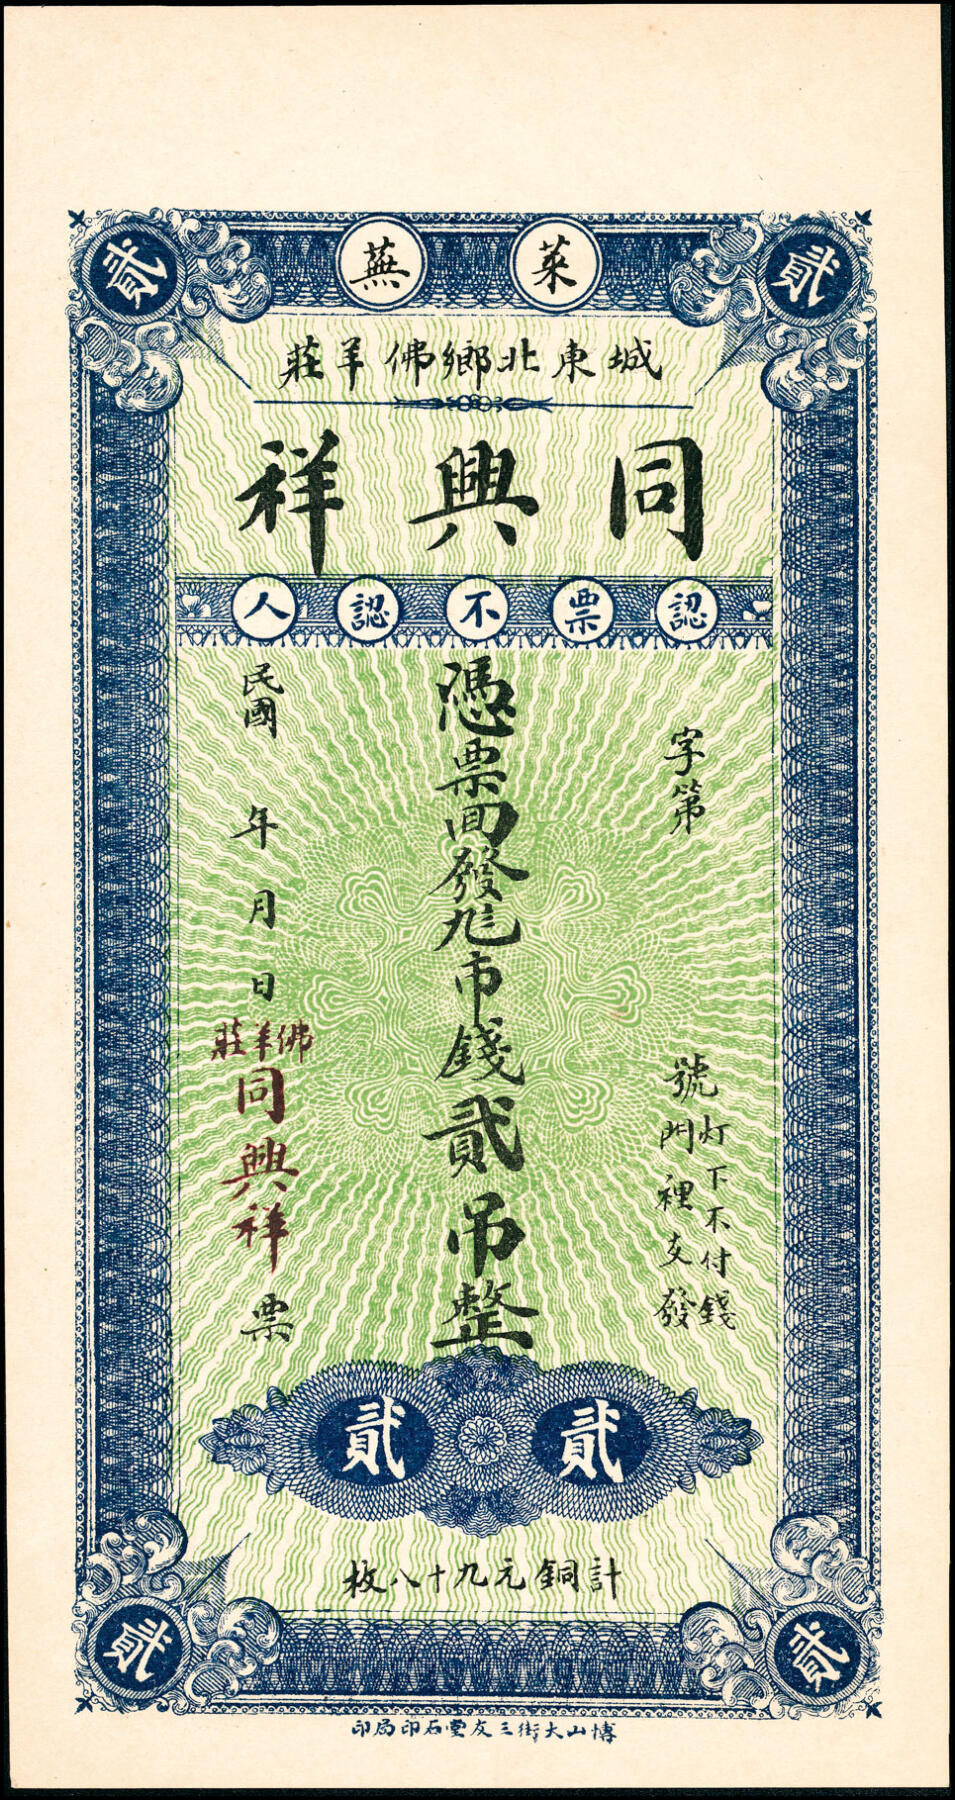 貳
萊蕪
貳
城東北鄉佛羊莊
同興祥
認票不認人
字第 號
灯下不付錢
門裡支發
憑票回發 市錢貳吊整
民國 年 月 日
佛羊莊
同興祥
票
貳 貳
計銅元九十八枚
貳
貳
博山大街三友堂石印局印